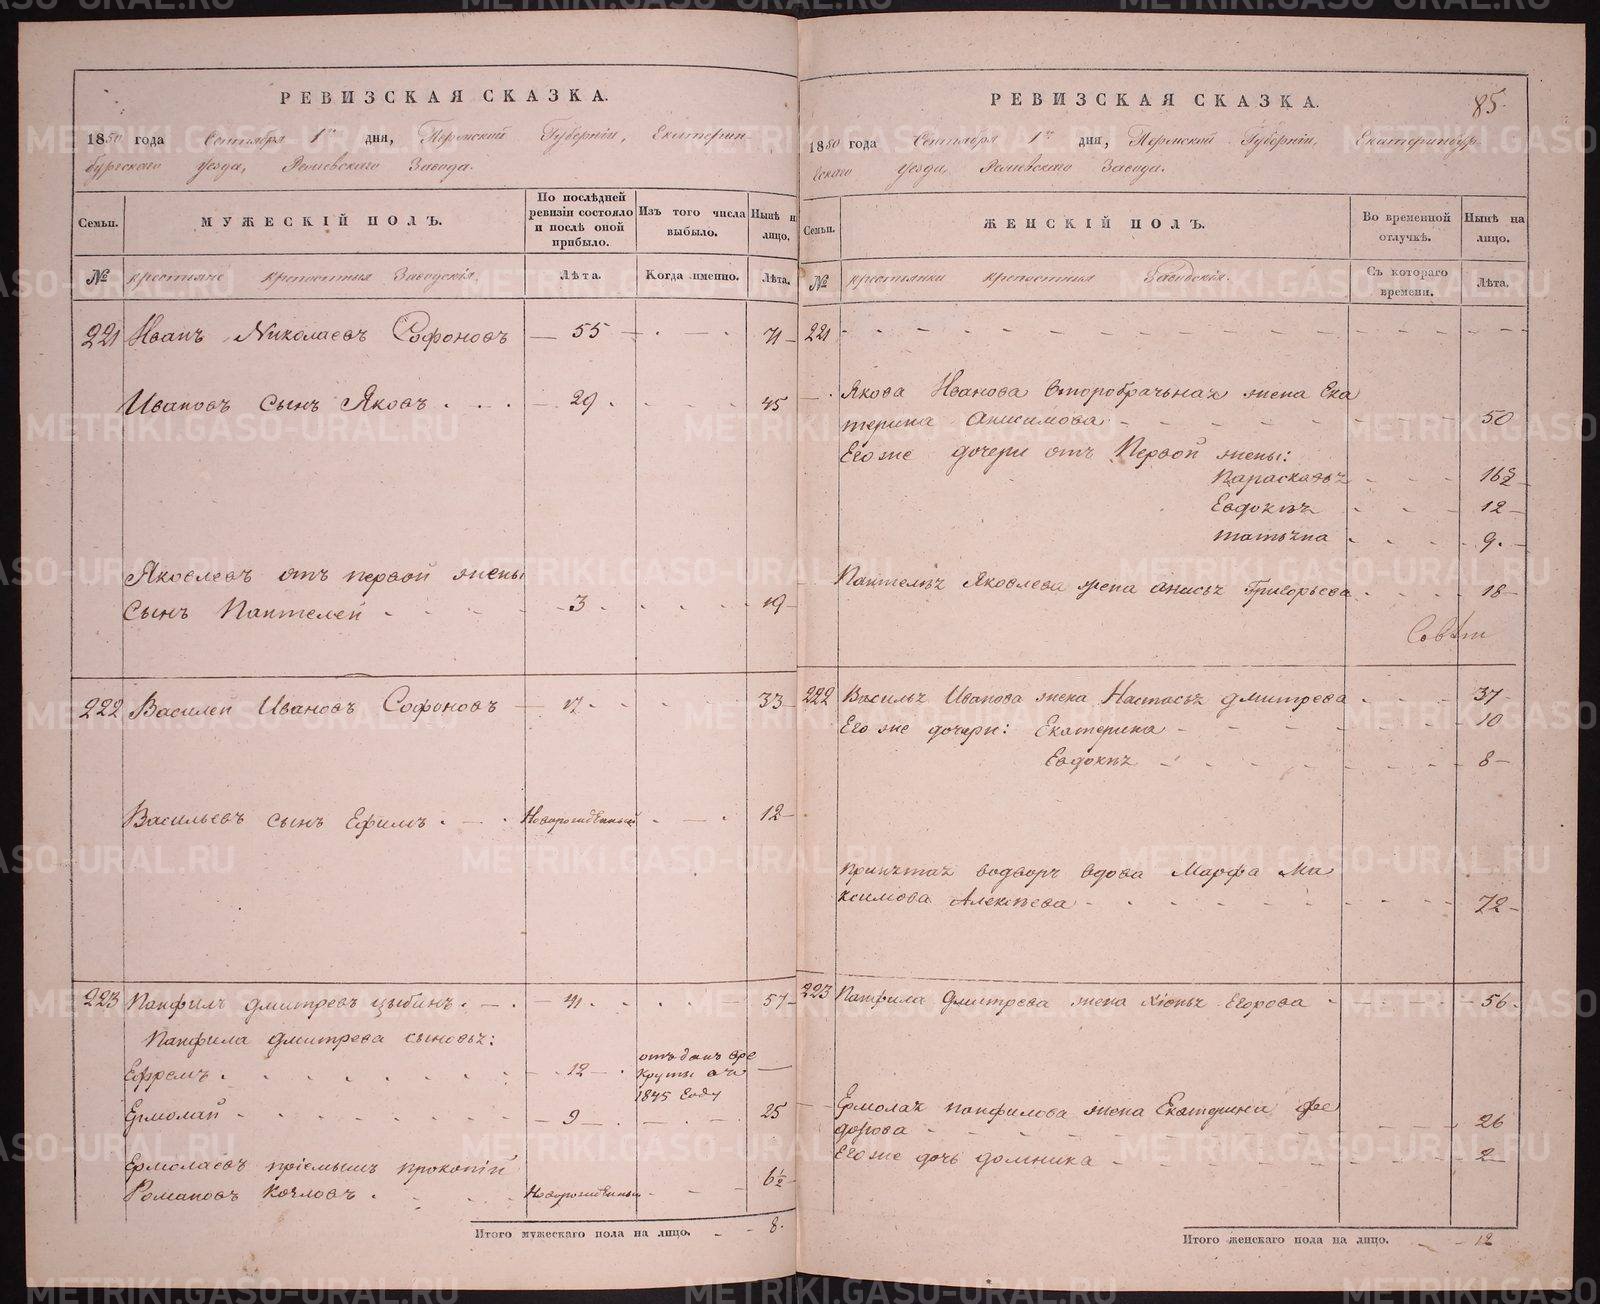 РЕВИЗСКАЯ СКАЗКА.
1850 года Сентября 1го дня, Пермский Губернiи, Екатерин-
бургскаго уезда, Режевскаго Завода.
Семьи.
МУЖЕСКІЙ ПОЛЪ.
По послѣдней ревизіи состояло и послѣ оной прибыло.
Изъ того числа выбыло.
Нынѣ на лицо.
№ крестьяне крепостныя Заводскія.
Лѣта.
Когда именно.
Лѣта.
221 Иванъ Николаевъ Софоновъ — 55 — 71
Ивановъ сынъ Яковъ — 29 — 45
Яковлевъ отъ первой жены
сынъ Пантелей — 3 — 19
222 Василей Ивановъ Софоновъ — 17 — 33
Васильевъ сынъ Ефимъ — Новорожденный — 12
223 Панфилъ Дмитревъ Цыбинъ — 41 — 57
Панфила Дмитрева сыновья:
Ефремъ — 12 — отъданъ вре
круты въ
1845 году
Ермолай — 9 — 25
Ермолаевъ пріемышъ прокопій
Романовъ Козловъ — Новорожденный — 6½
Итого мужескаго пола на лицо. — 8.
85.
РЕВИЗСКАЯ СКАЗКА.
1850 года Сентября 1го дня, Пермский Губернiи, Екатеринбур
гскаго уезда, Режевскаго Завода.
Семьи.
ЖЕНСКІЙ ПОЛЪ.
Во временной отлучкѣ.
Нынѣ на лицо.
№ крестьянки крепостныя Заводскія.
Съ котораго времени.
Лѣта.
221
Якова Иванова второбрачьная жена Ека
терина Анисимова — 50
Егоже дочери отъ Первой жены:
Парасковья — 16½
Евдокѣя — 12
татьяна — 9.
Пантелѣя Яковлева жена анисья Григорьева — 18
222 Василья Иванова жена Настасья дмитрева — 37
Его же дочери: Екатерина — 10
Евдокѣя — 8
принятая водворъ вдова Марфа Ма
ксимова Алексѣева — 72
223 Панфила Дмитрева жена Хіонья Егорова — 56
Ермолая панфилова жена Екатерина фе
дорова — 26
Егоже дочь домника — 2
Итого женскаго пола на лицо. — 12
METRIKI.GASO-URAL.RU